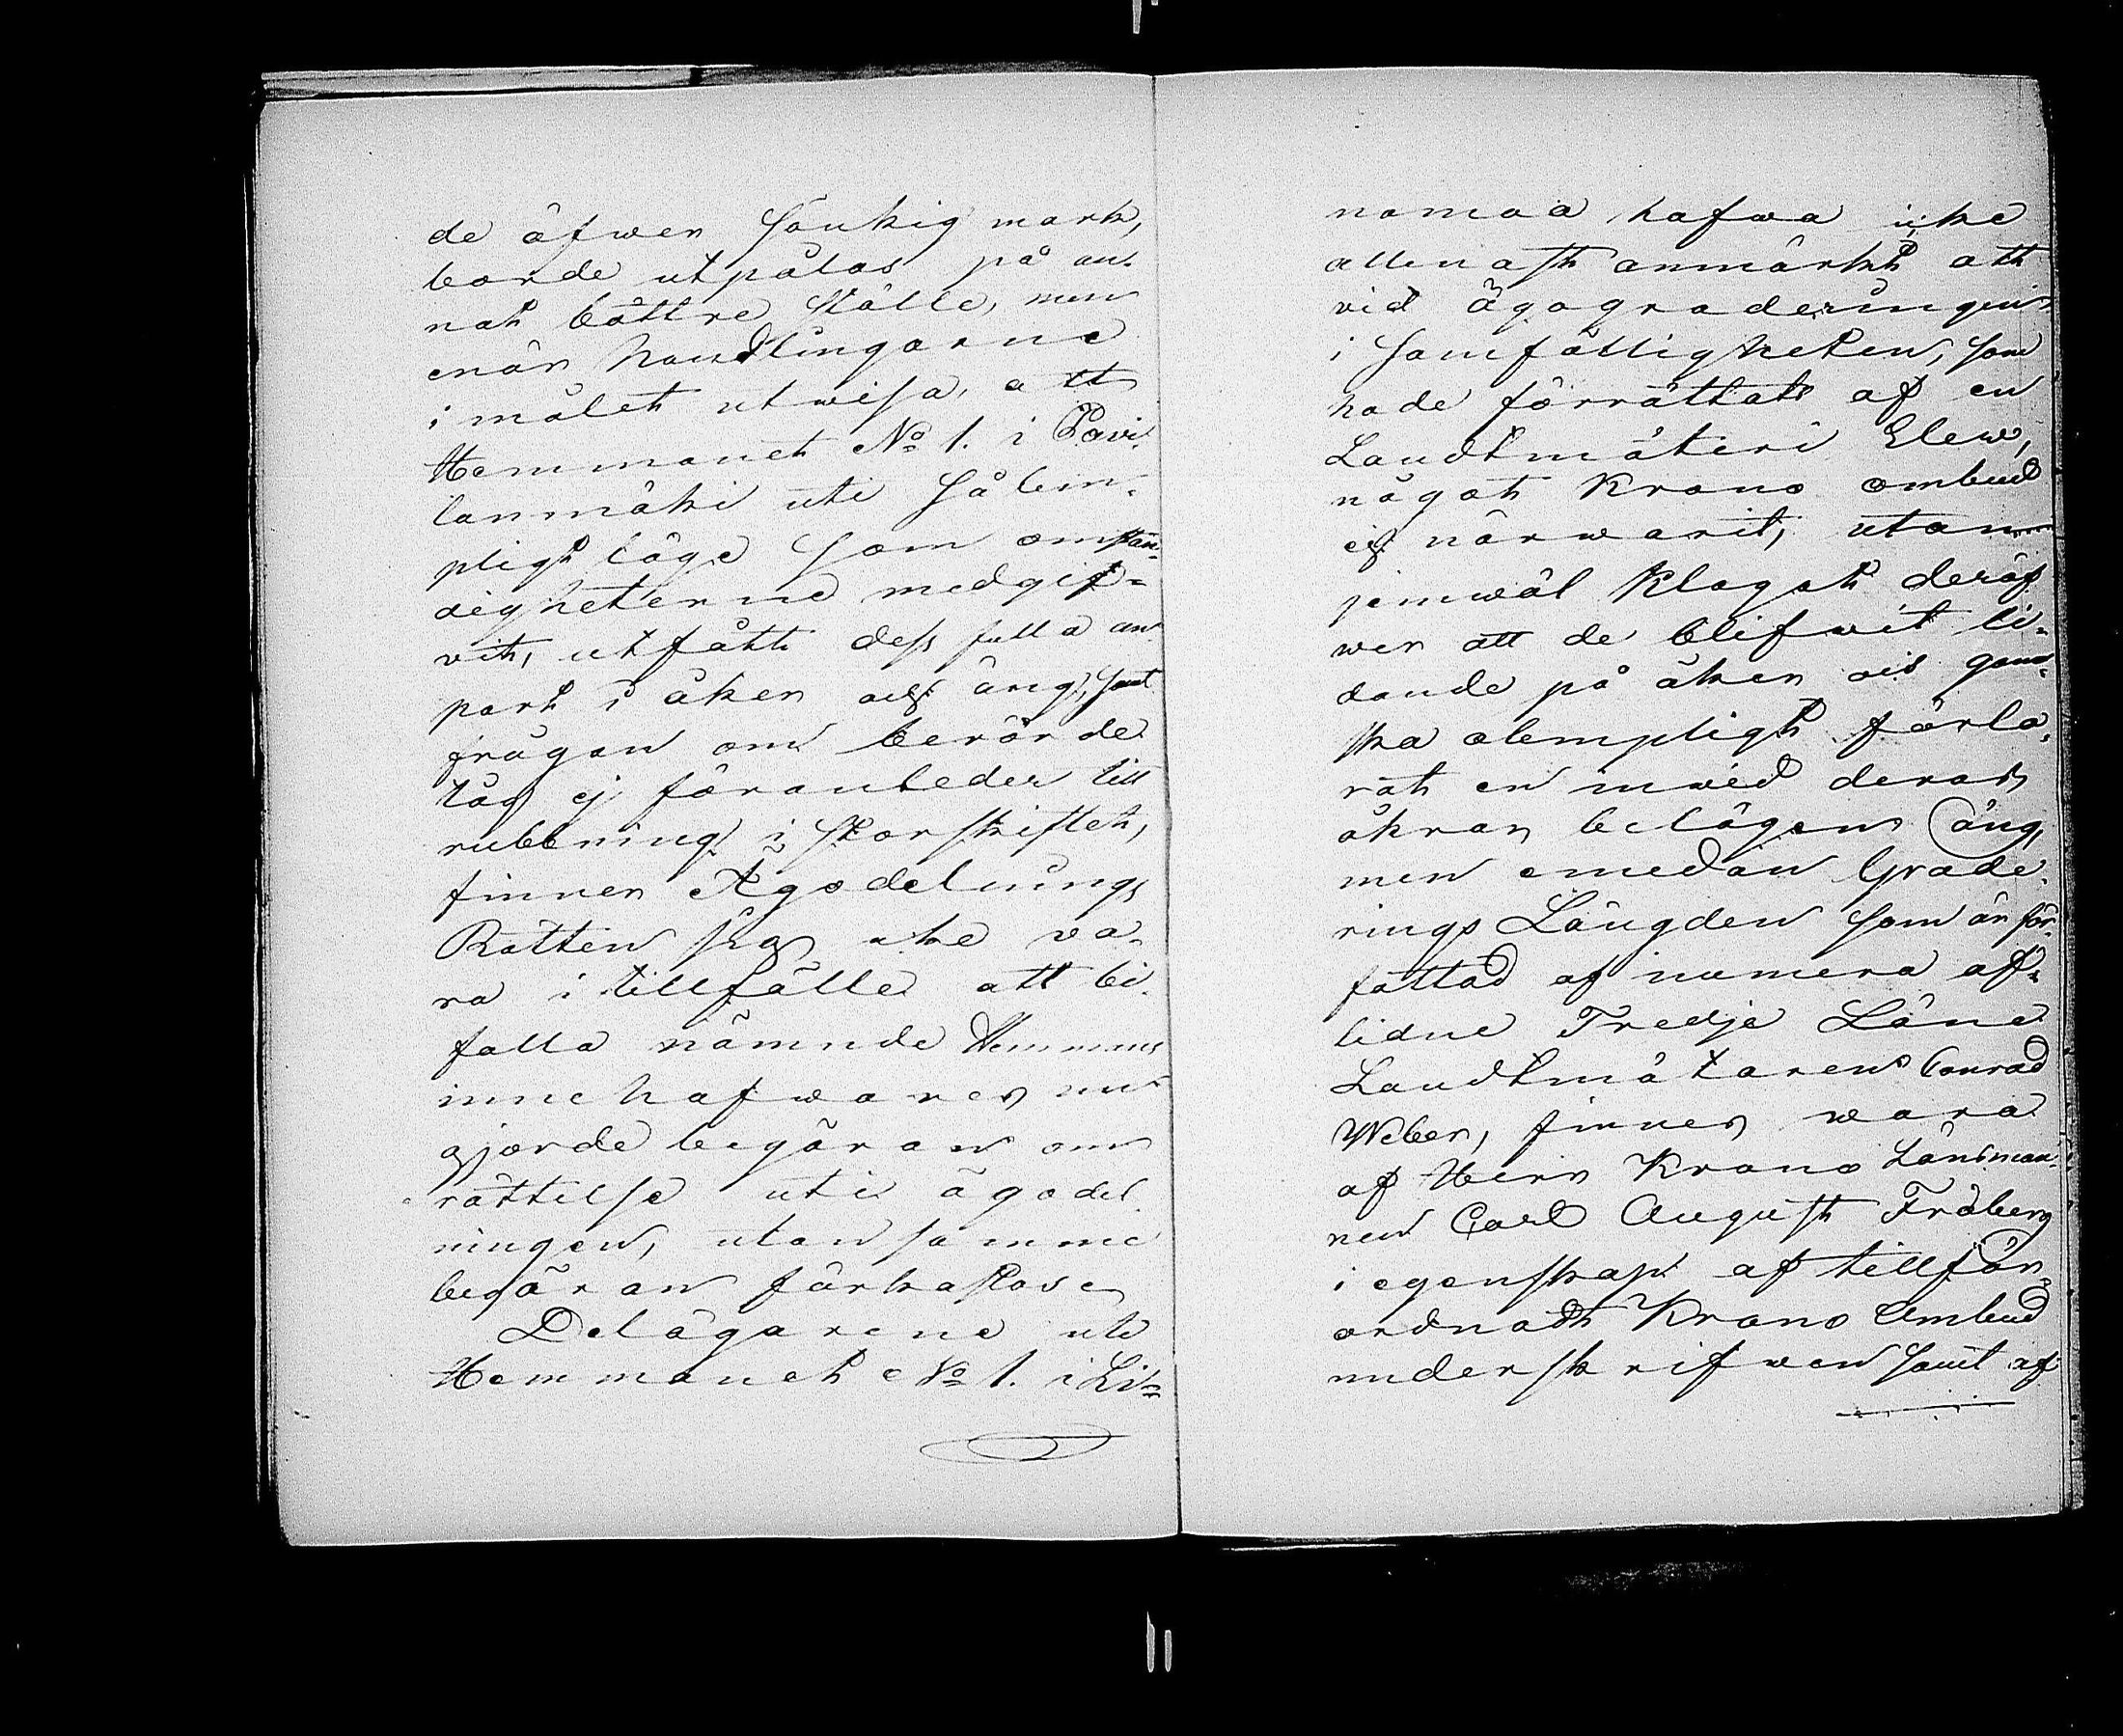 de öfwer Sankig mark,
borde utpålas på an¬
nat bättre Ställe, men
enär handlingarne
i målet utwisa, att
Hemmanet No 1. i Pavi¬
lanmäki uti Så lem¬
pligt läge Som omstän¬
digheterne medgif¬
vit, utfått dess fulla an¬
part i åker och äng, samt
frågan om berörde
tåg ej föranleder till
rubbning i Storskiftet,
finner Ägodelnings
Rätten sig icke va¬
ra i tillfälle att bi¬
falla nämnde Hemmans
innehafwares nu
gjorde begäran om
rättelse uti ägodel
ningen, utan samme
begäran förkastas.
Delägarene uti
Hemmanet No 1. i Li¬
namaa hafwa icke
allenast anmärkt att
vid ägograderingen
i Samfälligheten, som
hade förrättats af en
Landtmäteri Elew,
något Krono ombud
ej närwarit, utan
jemwäl klagat deröf
wer att de blifwit li¬
dande på åker och gan¬
ska olempligt förlo¬
rat en inwid deras
åkrar belägen äng,
men emedan Grade¬
rings Längden Som är för¬
fattad af numera af¬
lidne Tredje Läne
Landtmätaren Conrad
Weber, finnes wara
af Herr Krono Länsman¬
nen Carl August Fröberg
i egenskap af tillför
ordnadt Krono Ombud
underskrifwen samt af